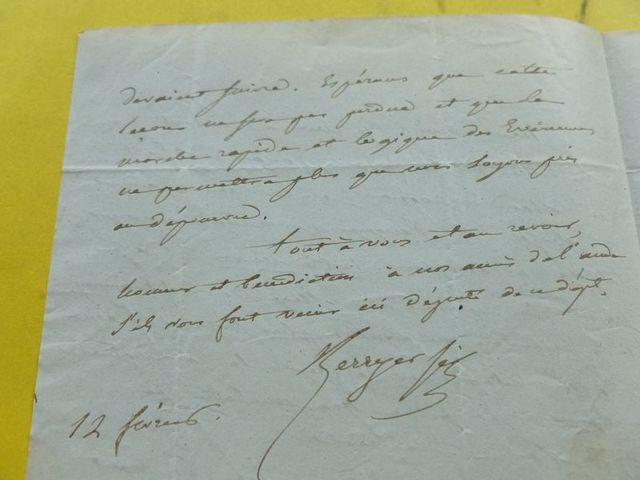 devaient suivre. Espérons que cette
leçon ne sera pas perdue et que la
marche rapide et logique des Evénemens
ne permettra plus que nous soyons pris
au dépourvu.
tout à vous et au revoir,
honneur et bénédiction à nos amis de l'aude
s'ils vous font venir ici député de ce dépt.
Berryer fils
12 février.